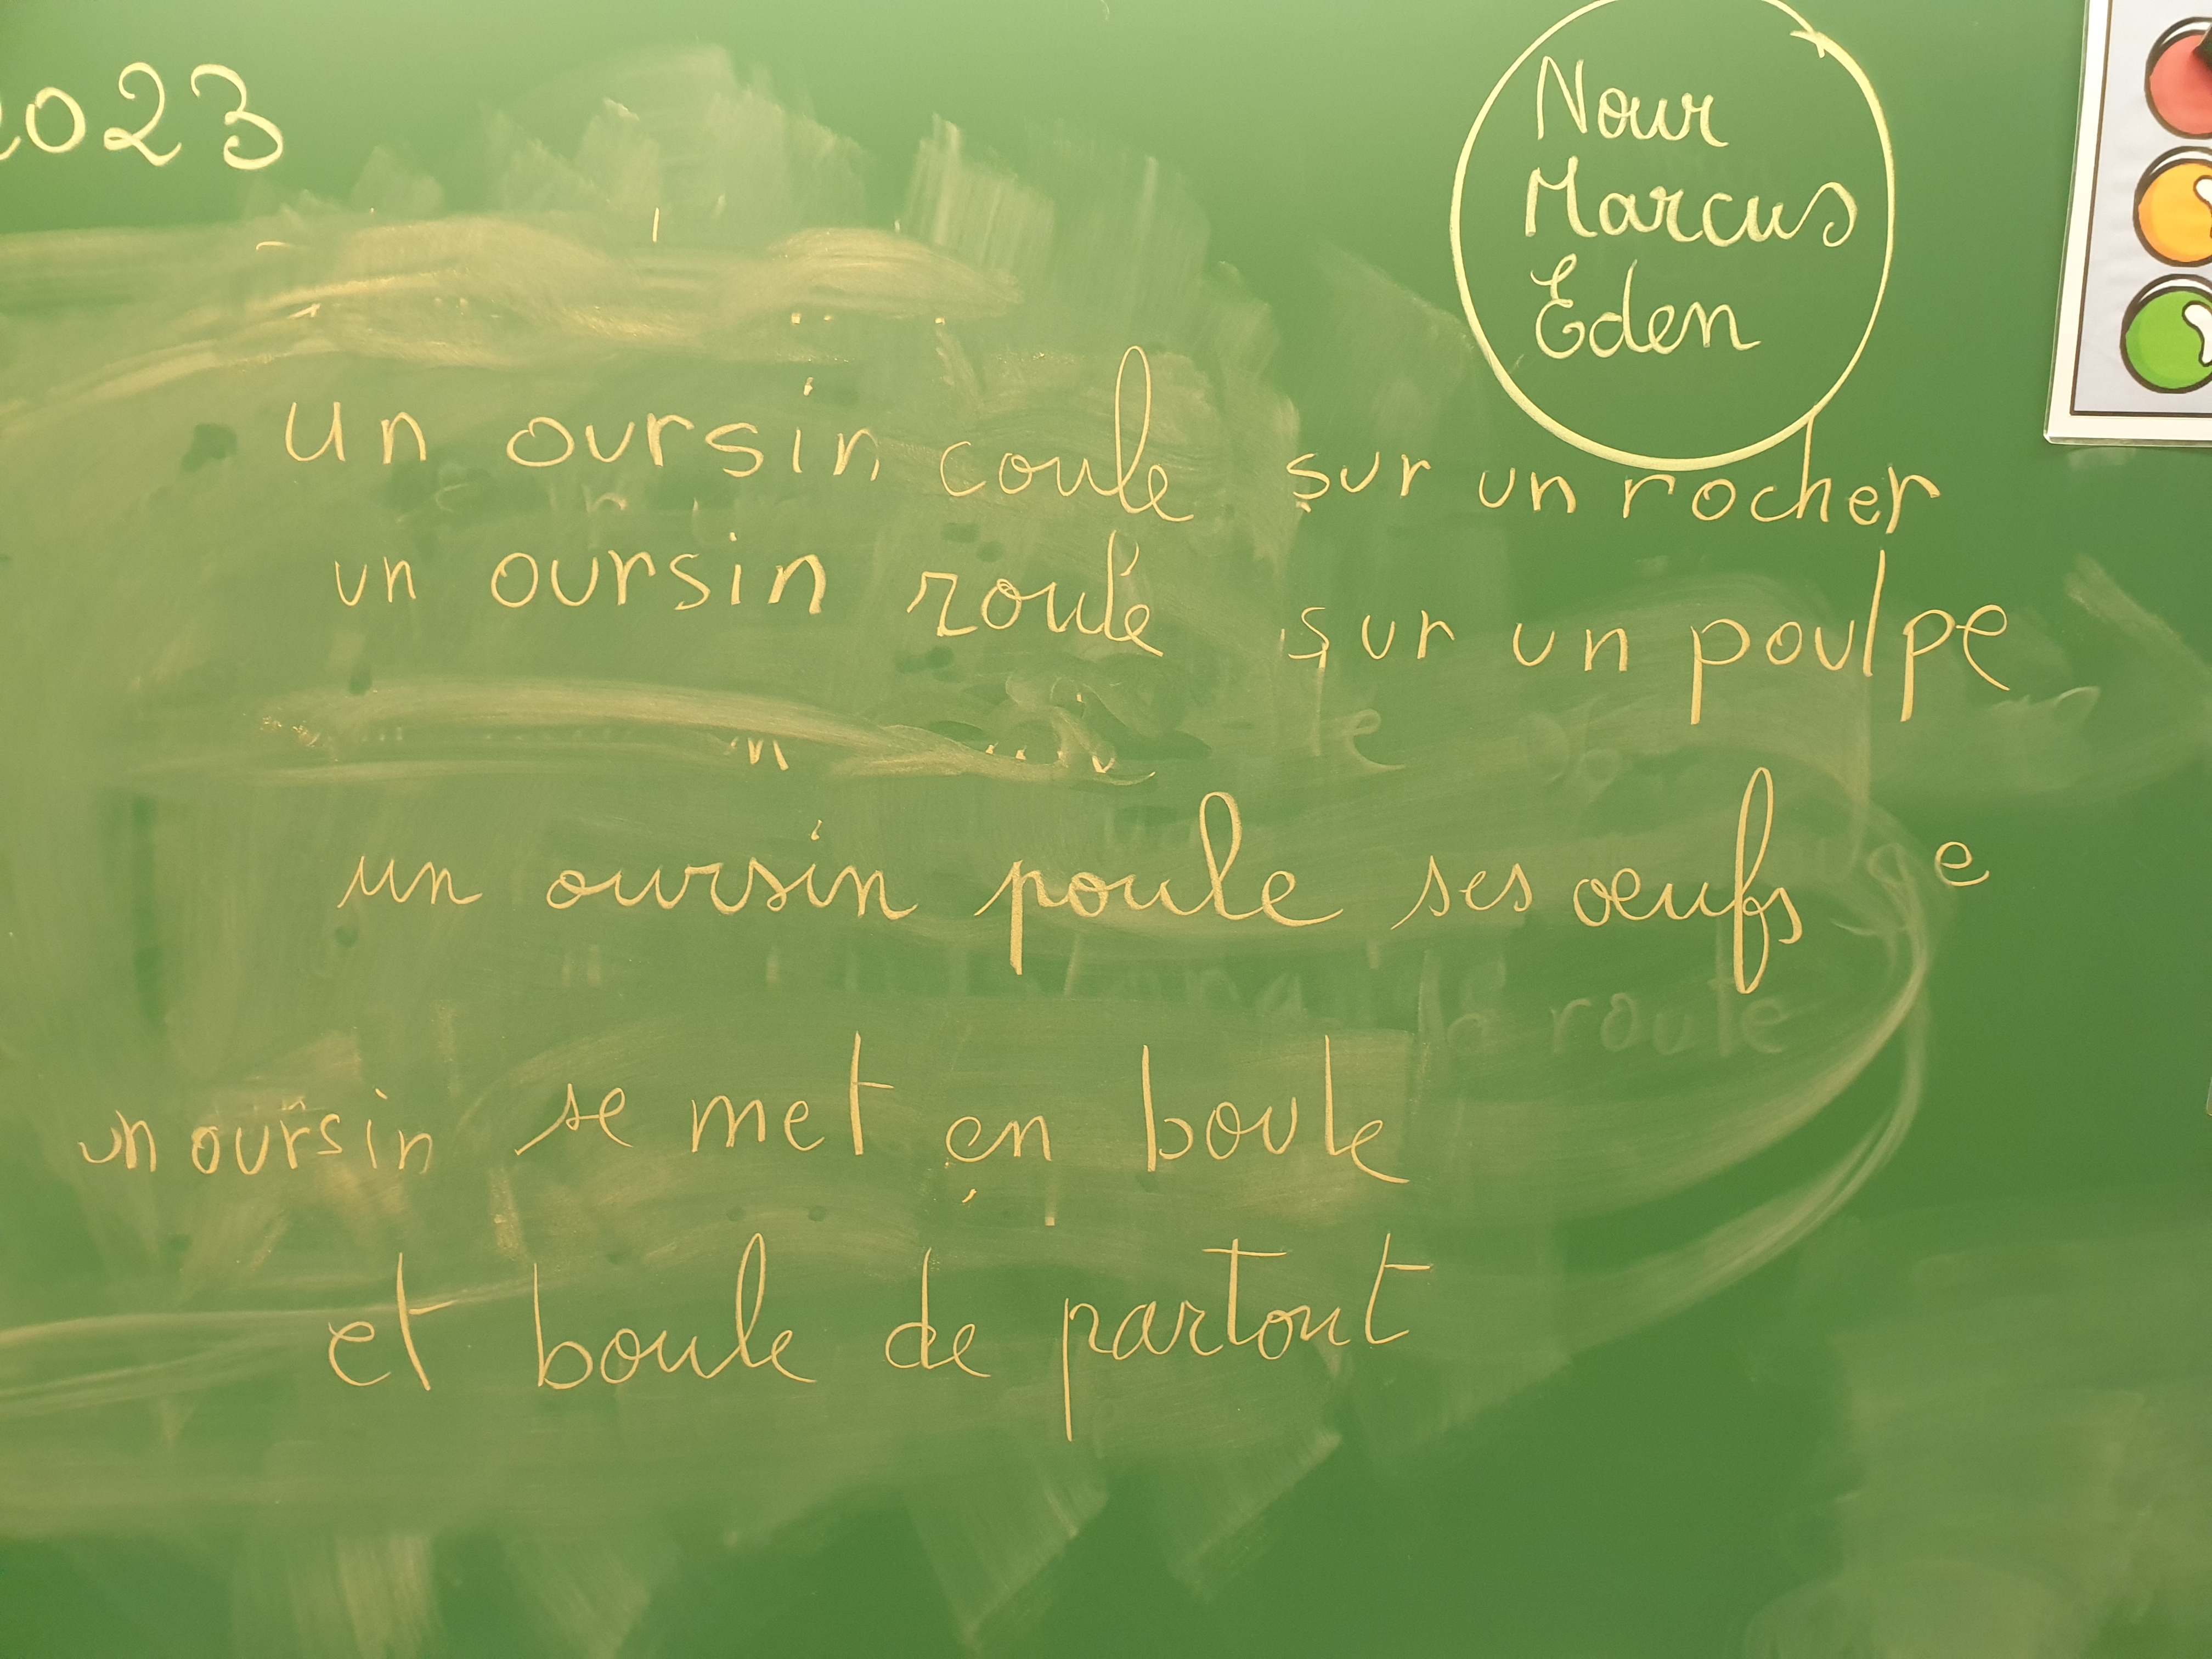 2023
Nour
Marcus
Eden
un oursin coule sur un rocher
un oursin roule sur un poulpe
un oursin poule ses œufs e
un oursin se met en boule
et boule de partout
la route